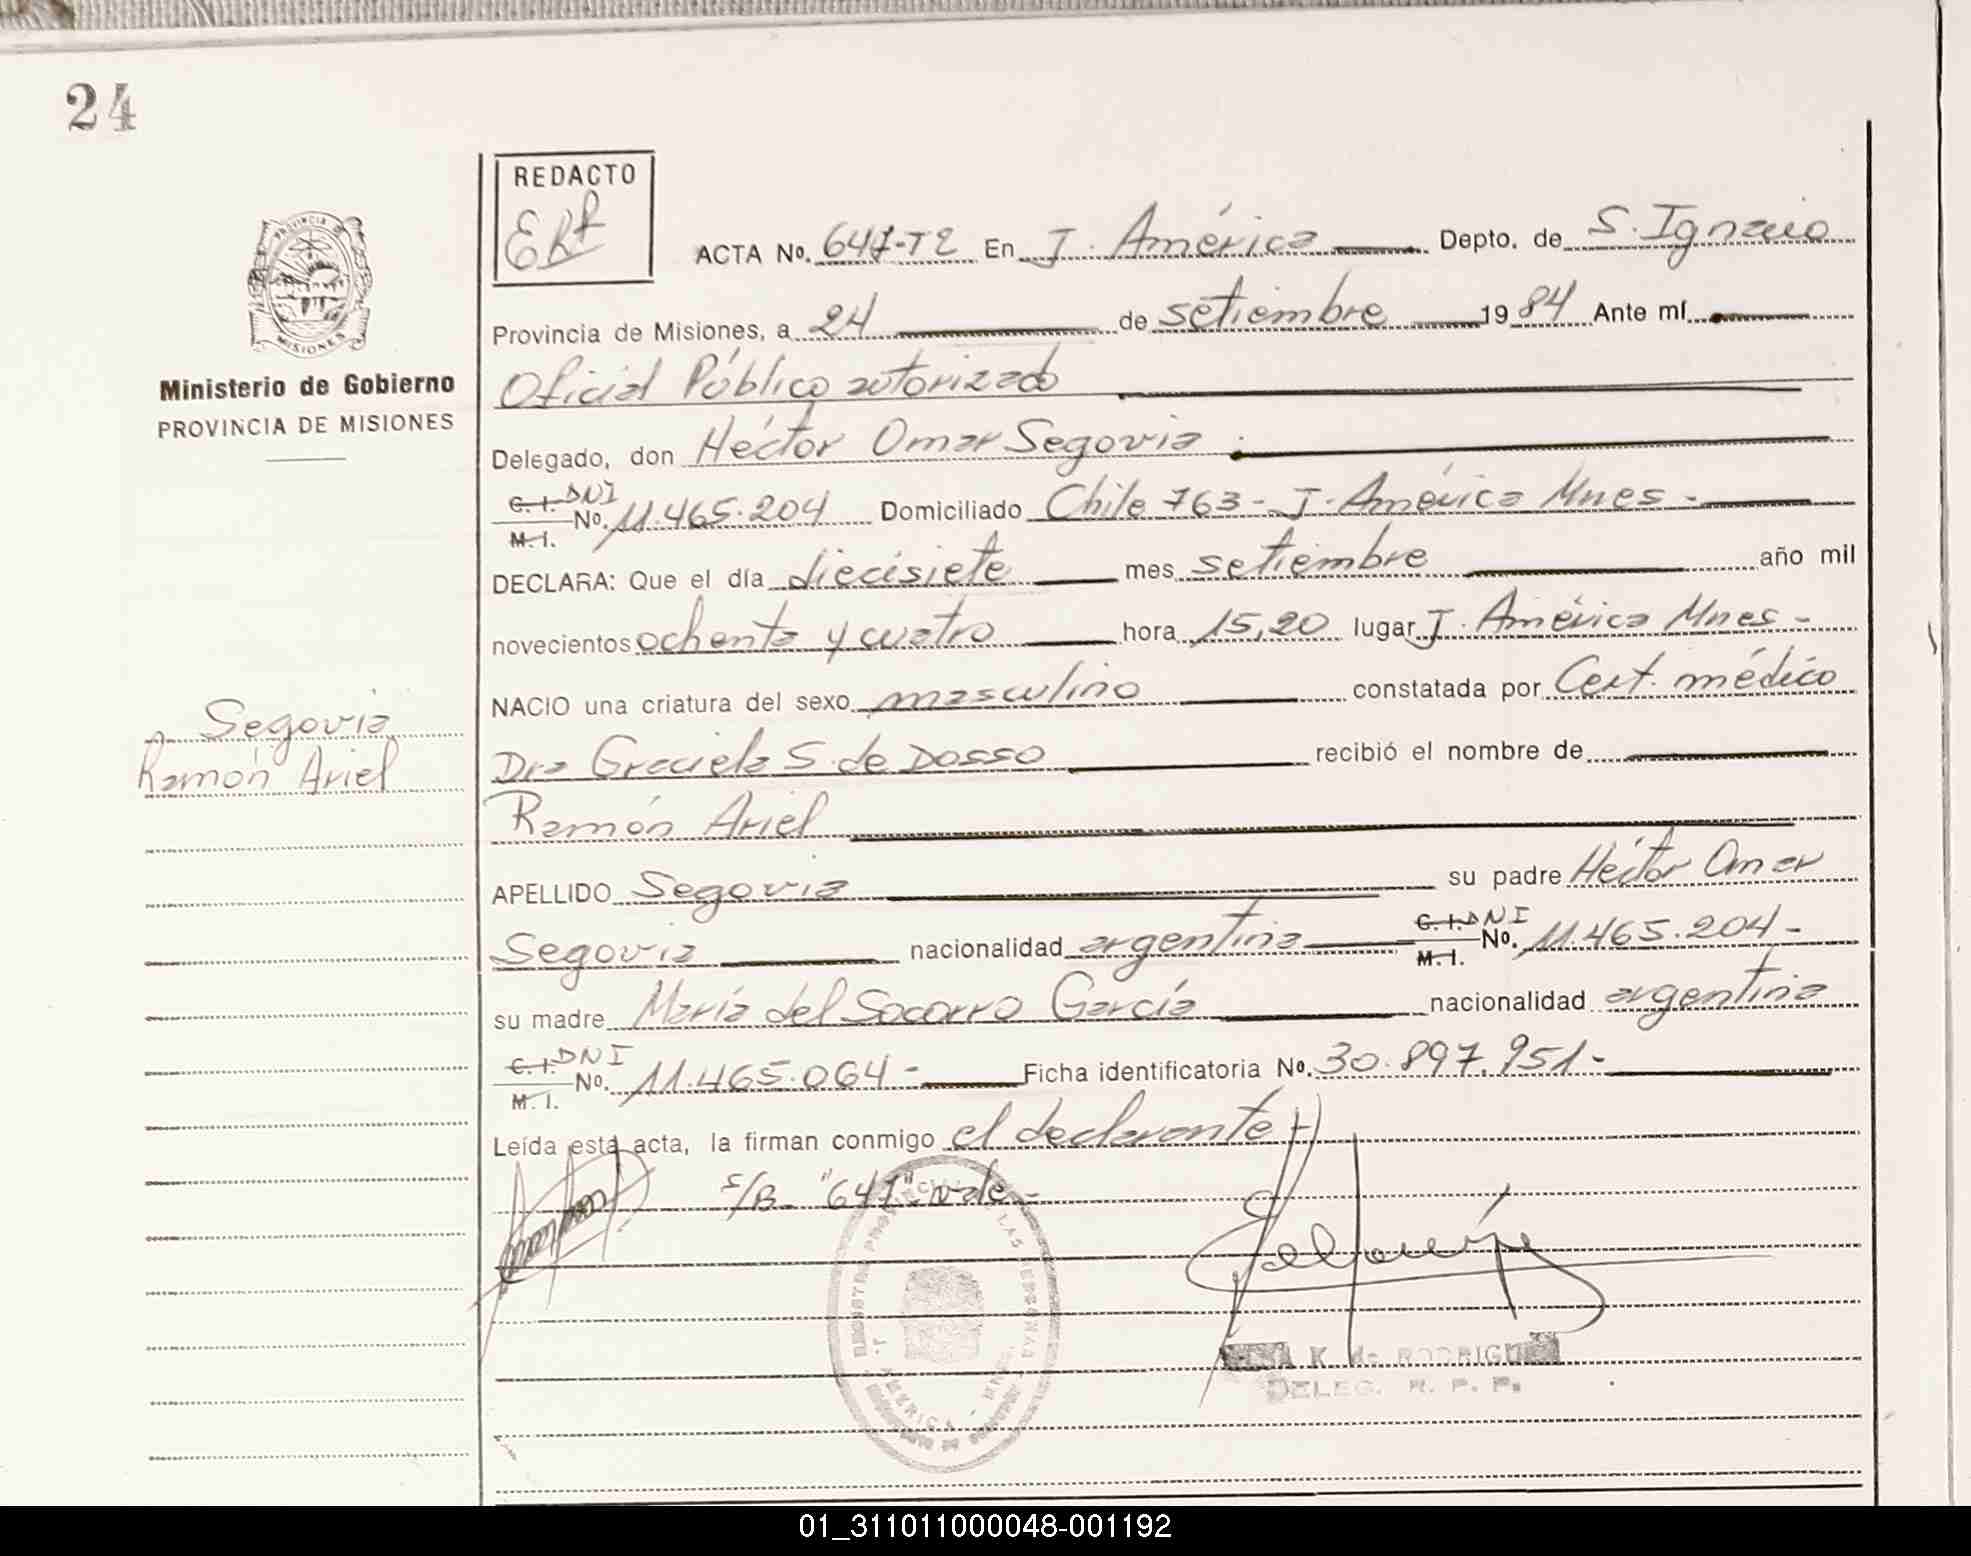 24
REDACTO
ERR
ACTA No. 647-T2 En J. América Depto. de S. Ignacio
PROVINCIA DE
MISIONES
Provincia de Misiones, a 24 de setiembre 1984 Ante mí
Ministerio de Gobierno
PROVINCIA DE MISIONES
Oficial Público autorizado
Delegado, don Héctor Omar Segovia
C.I. DNI
No. 11.465.204 Domiciliado Chile 763 - J. América Mnes -
M.I.
DECLARA: Que el día diecisiete mes setiembre año mil
novecientos ochenta y cuatro hora 15,20 lugar J. América Mnes -
NACIO una criatura del sexo masculino constatada por Cert. médico
Segovia
Ramón Ariel
Dra Graciela S. de Dosso recibió el nombre de
Ramón Ariel
APELLIDO Segovia su padre Héctor Omar
Segovia nacionalidad argentina C.I. DNI No. 11.465.204 -
M.I.
su madre María del Socorro García nacionalidad argentina
C.I. DNI
No. 11.465.064 - Ficha identificatoria No. 30.897.951 -
M.I.
Leída esta acta, la firman conmigo el declarante
S/B "647" vale -
K. de RODRIGUEZ
DELEG. R. P. P.
AMERICA - MNES.
01_311011000048-001192